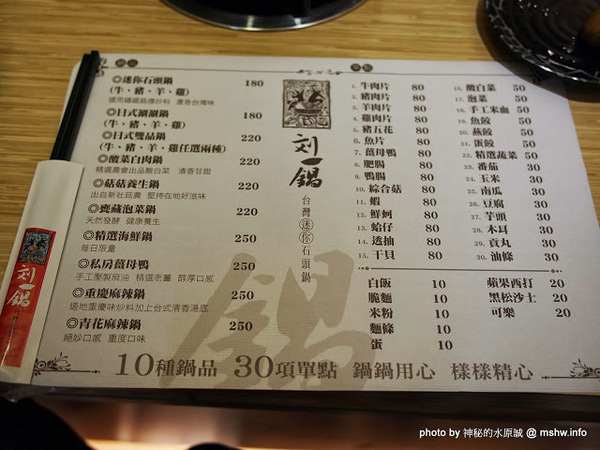 ◎迷你石頭鍋 180
(牛、豬、羊、雞)
選用鐵鍋鍋爆炒料 濃香台灣味
◎日式涮涮鍋 180
(牛、豬、羊、雞)
◎日式雙品鍋 220
(牛、豬、羊、雞任選兩種)
◎酸菜白肉鍋 220
精選農會出品酸白菜 清香甘甜
◎菇菇養生鍋 220
出自新社菇農 堅持在地好滋味
◎甕藏泡菜鍋 220
天然發酵 健康養生
◎精選海鮮鍋 250
每日限量
◎私房薑母鴨 250
手工壓製麻油 精選老薑 醇厚口感
◎重慶麻辣鍋 250
道地重慶味炒料加上台式清香湯底
◎青花麻辣鍋 250
絕妙口感 重度口味
刘一锅
台灣迷你石頭鍋
單點
1. 牛肉片 80
2. 豬肉片 80
3. 羊肉片 80
4. 雞肉片 80
5. 豬五花 80
6. 魚片 80
7. 薑母鴨 80
8. 肥腸 80
9. 鴨腸 80
10. 綜合菇 80
11. 蝦 80
12. 鮮蚵 80
13. 蛤仔 80
14. 透抽 80
15. 干貝 80
16. 酸白菜 50
17. 泡菜 50
18. 手工米血 50
19. 魚餃 50
20. 燕餃 50
21. 蛋餃 50
22. 精選蔬菜 50
23. 番茄 30
24. 玉米 30
25. 南瓜 30
26. 豆腐 30
27. 芋頭 30
28. 木耳 30
29. 貢丸 30
30. 油條 30
白飯 10
脆麵 10
米粉 10
麵條 10
蛋 10
蘋果西打 20
黑松沙士 20
可樂 20
鍋
10種鍋品 30項單點 鍋鍋用心 樣樣精心
刘一锅
photo by 神秘的水原誠 @ mshw.info